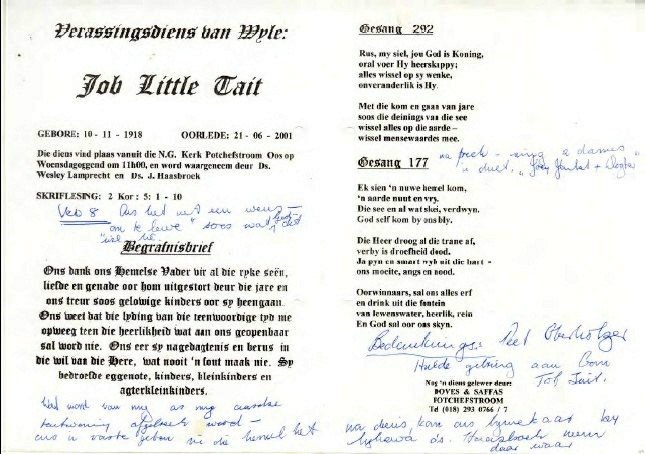 Verassingsdiens van Wyle:
Job Little Tait
GEBORE: 10 - 11 - 1918 OORLEDE: 21 - 06 - 2001
Die diens vind plaas vanuit die N.G. Kerk Potchefstroom Oos op
Woensdagoggend om 11h00, en word waargeneem deur Ds.
Wesley Lamprecht en Ds. J. Haasbroek
SKRIFLESING: 2 Kor : 5: 1 - 10
Ons het net een wens -
om te lewe " soos wat God dit
wil hê.
Begrafnisbrief
Ons dank ons Hemelse Vader vir al die ryke seën,
liefde en genade oor hom uitgestort deur die jare en
ons treur soos gelowige kinders oor sy heengaan.
Ons weet dat die lyding van die teenwoordige tyd me
opweeg teen die heerlikheid wat aan ons geopenbaar
sal word nie. Ons eer sy nagedagtenis en berus in
die wil van die Here, wat nooit 'n fout maak nie. Sy
bedroefde eggenote, kinders, kleinkinders en
agterkleinkinders.
word van my as my aardse
tentwoning afgebreek word -
ons 'n vaste gebou in die hemel het
Gesang 292
Rus, my siel, jou God is Koning,
oral voer Hy heerskappy;
alles wissel op sy wenke,
onveranderlik is Hy.
Met die kom en gaan van jare
soos die deinings van die see
wissel alles op die aarde –
wissel mensewaardes mee.
na preek - sing 2 dames
'n duet, " Joey + Dogter "
Gesang 177
Ek sien 'n nuwe hemel kom,
'n aarde nuut en vry.
Die see en al wat skei, verdwyn.
God self kom by ons bly.
Die Heer droog al die trane af,
verby is droefheid dood.
Ja pyn en smart wyk uit die hart -
ons moeite, angs en nood.
Oorwinnaars, sal ons alles erf
en drink uit die fontein
van lewenswater, heerlik, rein
En God sal oor ons skyn.
Bedankings: Piet Oberholzer
Hulde gebring aan Oom
Job Tait.
Nog 'n diens gelewer deur:
DOVES & SAFFAS
POTCHEFSTROOM
Tel (018) 293 0766 / 7
na diens, kan ons bymekaar by
ds. Haasbroek
daar waar